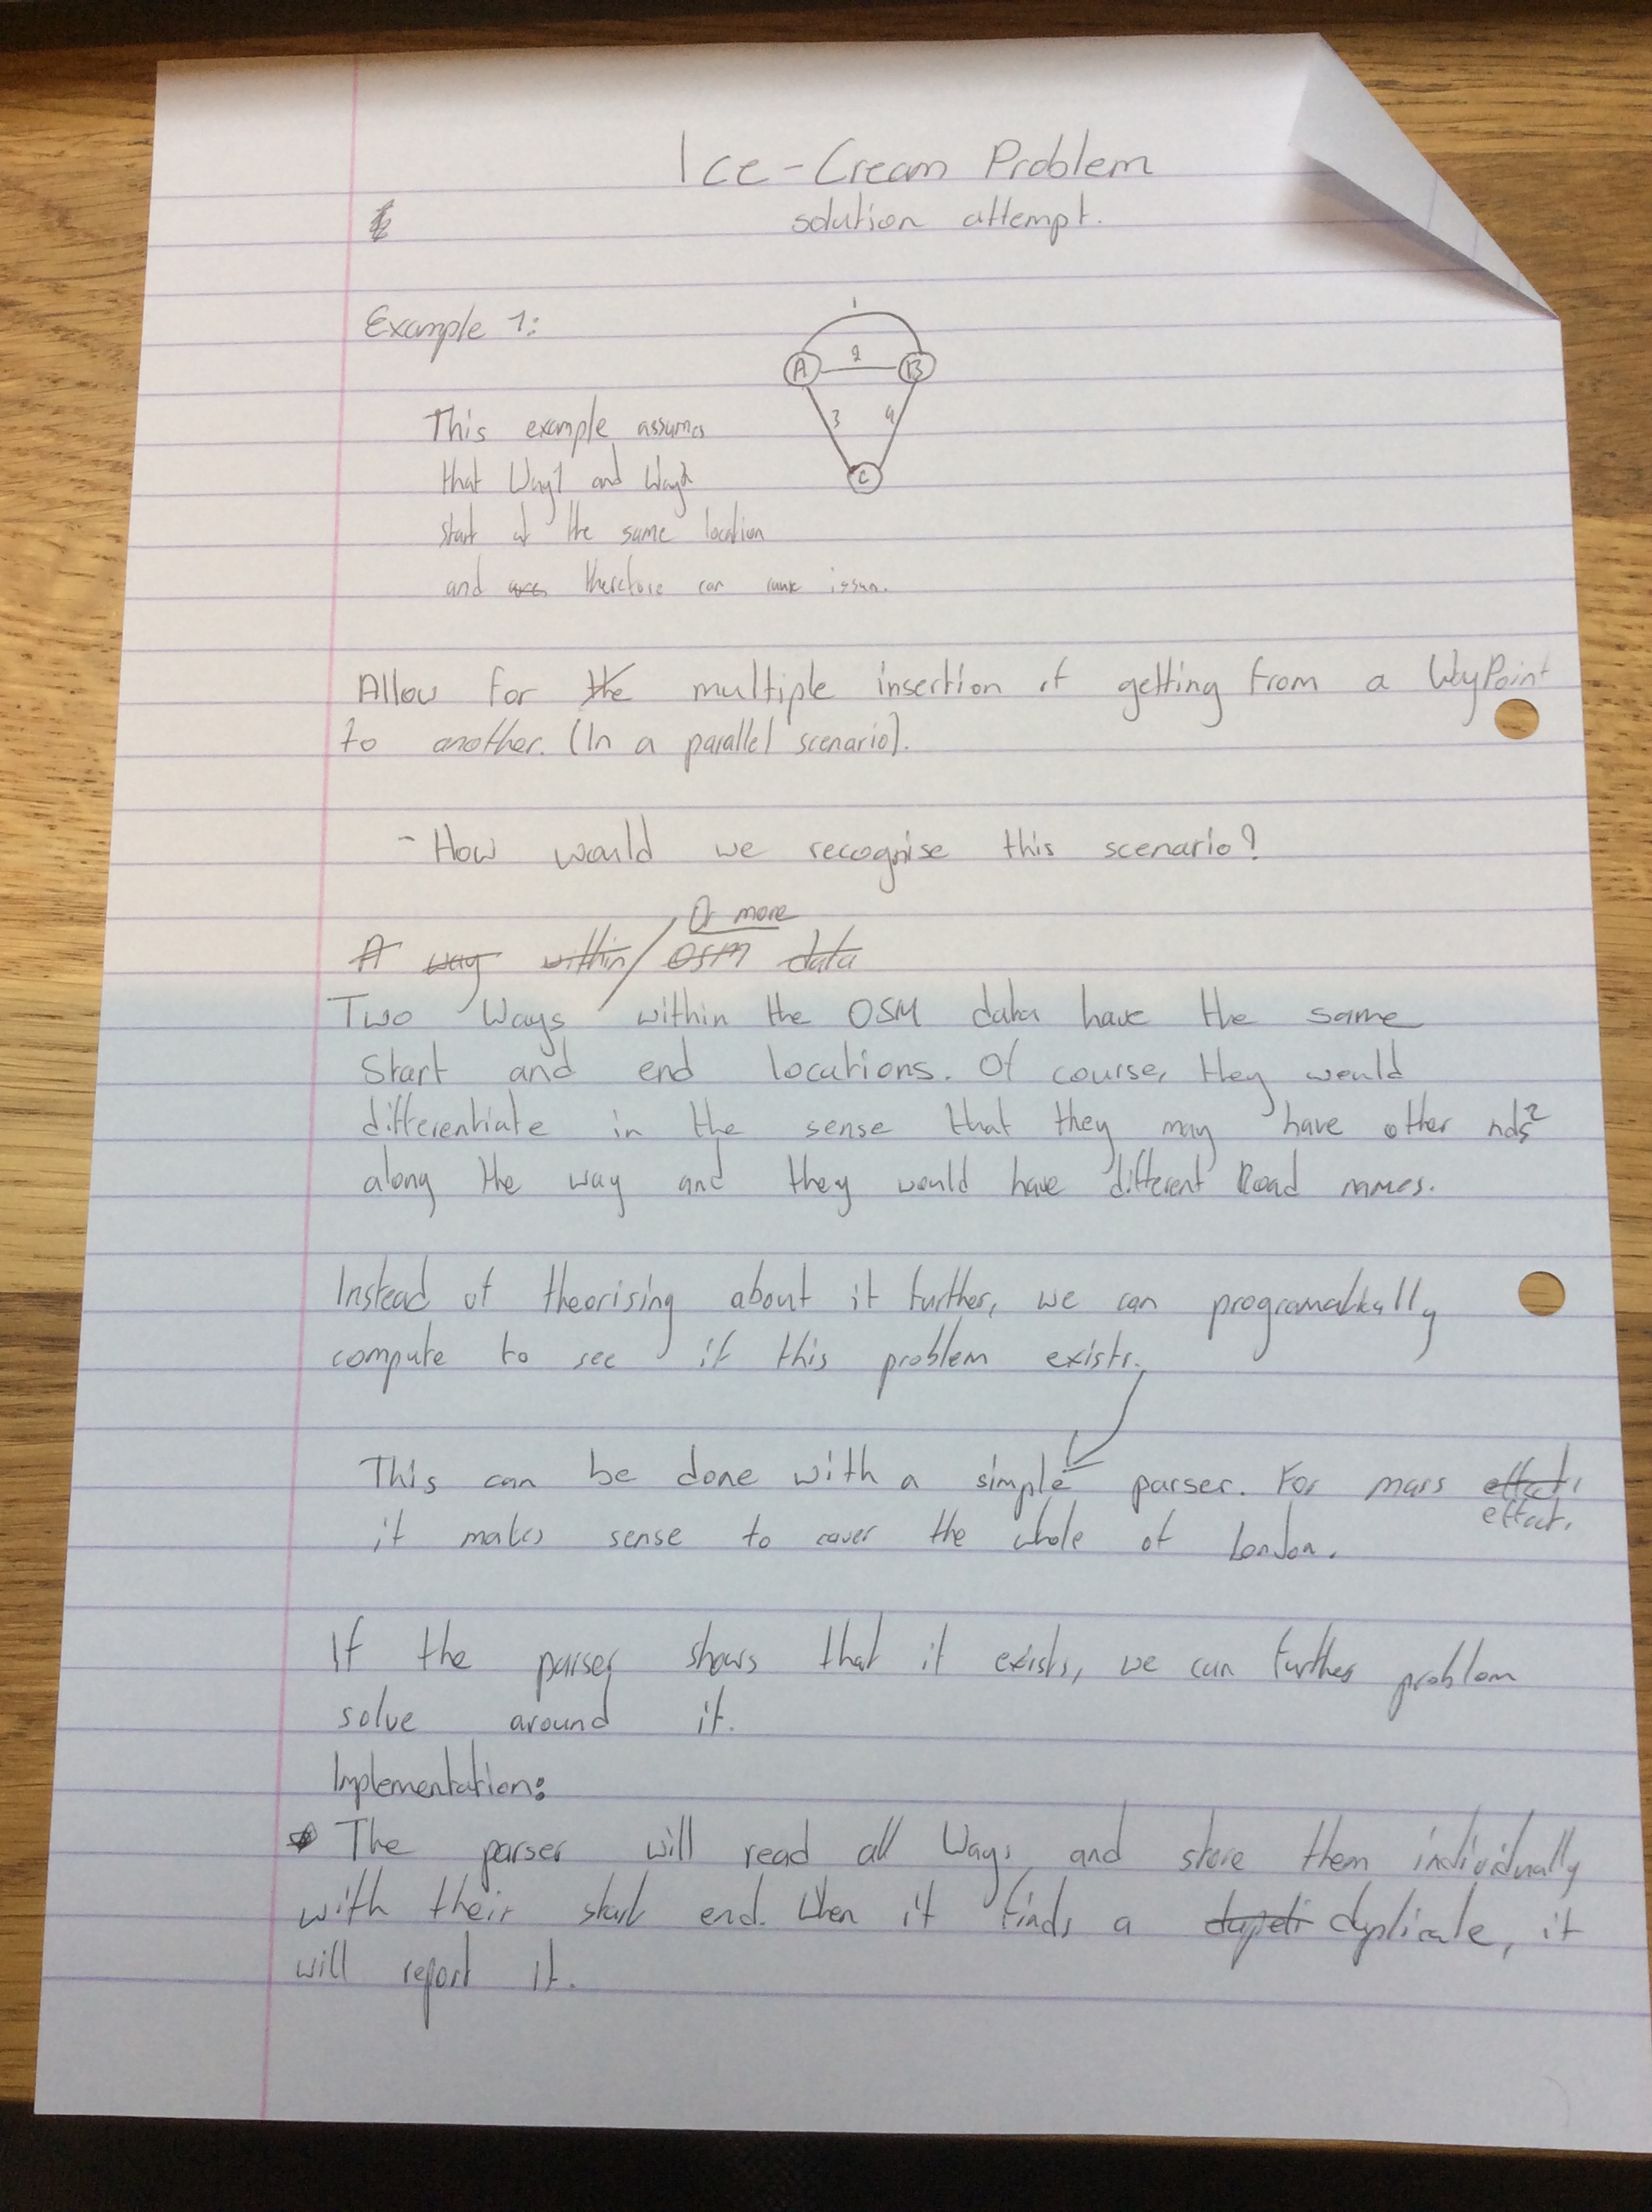 Ice-Cream Problem
solution attempt.
Example 1:
1
A 2 B
3 4
C
This example assumes
that Way1 and Way2
start at the same location
and are therefore can cause issues.
Allow for the multiple insertion of getting from a WayPoint
to another. (In a parallel scenario).
- How would we recognise this scenario?
Or more
A way within OSM data
Two Ways within the OSM data have the same
Start and end locations. Of course, they would
differentiate in the sense that they may have other nds?
along the way and they would have different Road names.
Instead of theorising about it further, we can programatically
compute to see if this problem exists.
This can be done with a simple parser. For mass effect,
effect,
it makes sense to cover the whole of London.
If the parser shows that it exists, we can further problem
solve around it.
Implementation:
The parser will read all Ways and store them individually
with their start end. When it finds a duplicate, it
will report it.